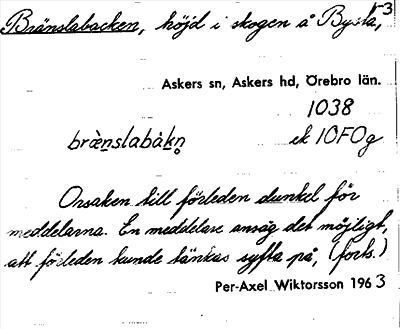 Bränslabacken, höjd i skogen å Bysta,
53
Askers sn, Askers hd, Örebro län.
1038
bræ̀nslabàkn̥
ek 10F0g
Orsaken till förleden dunkel för
meddelarna. En meddelare ansåg det möjligt,
att förleden kunde tänkas syfta på, (forts.)
Per-Axel Wiktorsson 1963